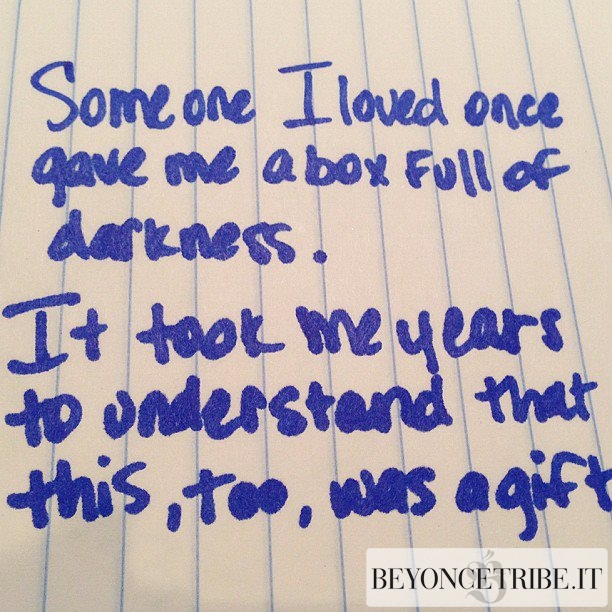 Someone I loved once
gave me a box full of
darkness.
It took me years
to understand that
this, too, was a gift
BEYONCETRIBE.IT